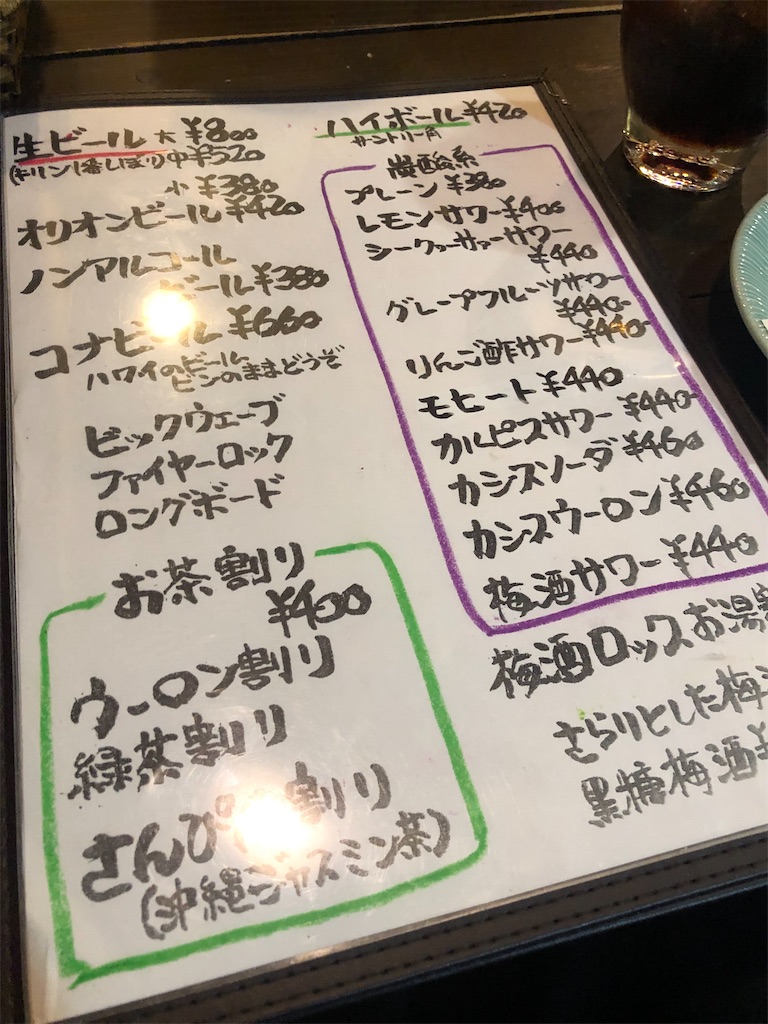 生ビール 大 ¥800
(キリン1番しぼり)中¥520
小 ¥380
オリオンビール¥420
ノンアルコール
ビール¥380
コナビール ¥660
ハワイのビール
ビンのままどうぞ
ビックウェーブ
ファイヤーロック
ロングボード
お茶割り
¥400
ウーロン割り
緑茶割り
さんぴ 割り
(沖縄ジャスミン茶)
ハイボール¥420
サントリー角
炭酸系
プレーン ¥380
レモンサワー¥400
シークァーサーサワー
¥440
グレープフルーツサワー
¥440-
りんご酢サワー¥440-
モヒート ¥440
カルピスサワー ¥440-
カシスソーダ ¥460
カシスウーロン¥460
梅酒サワー¥440
梅酒ロックお湯
さらりとした梅
黒糖梅酒